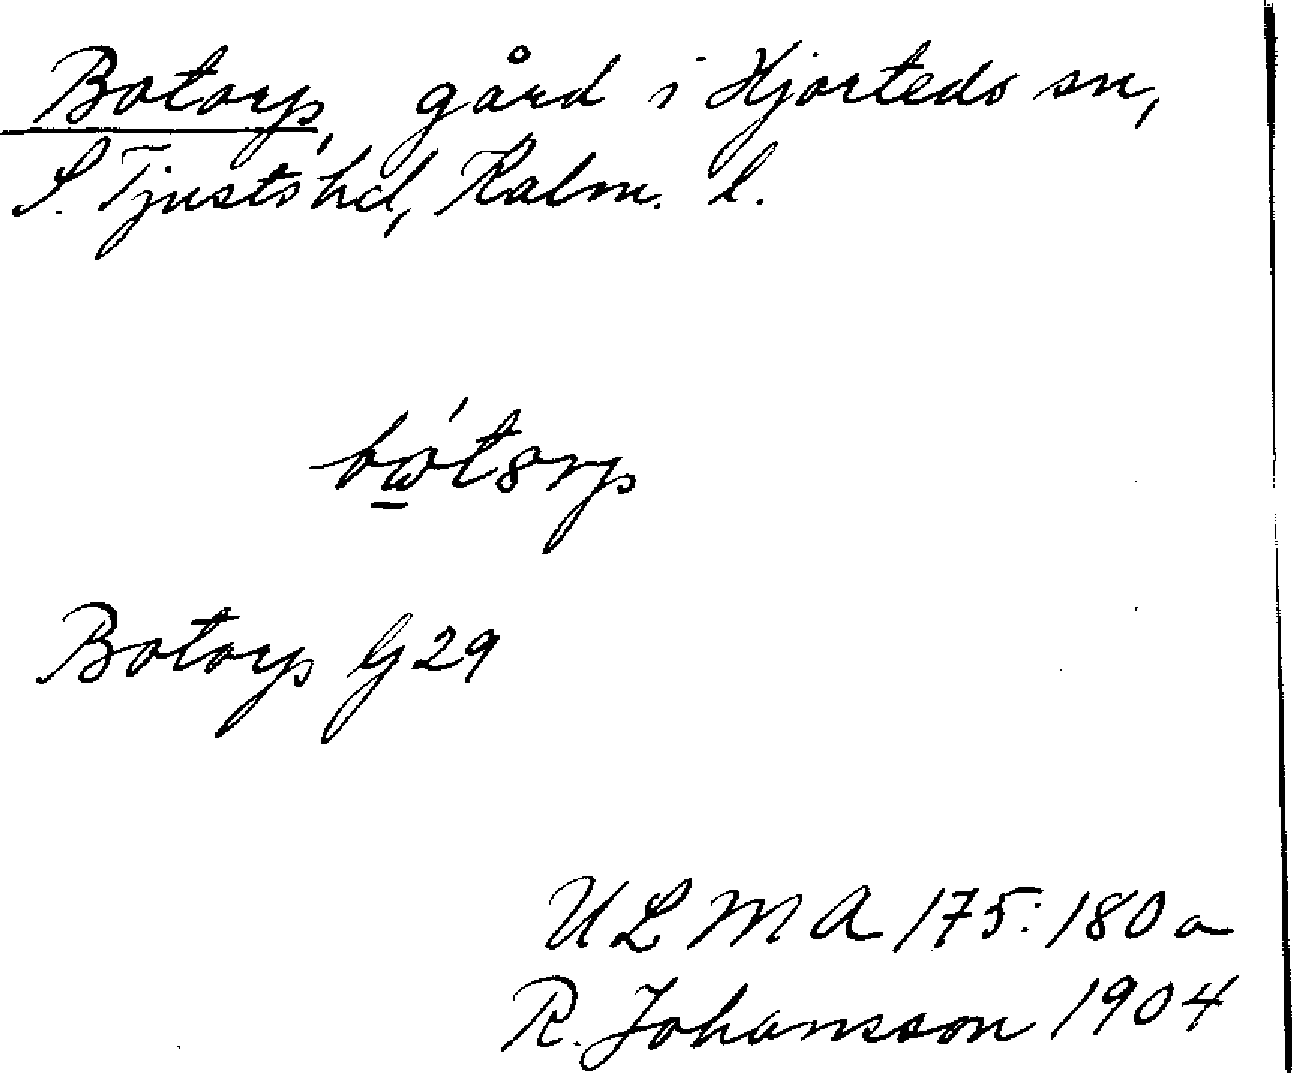 Botorp, gård i Hjorteds sn,
S. Tjusts hd, Kalm. l.
Botorp G 29
ULMA 175:180 a
R. Johansson 1904